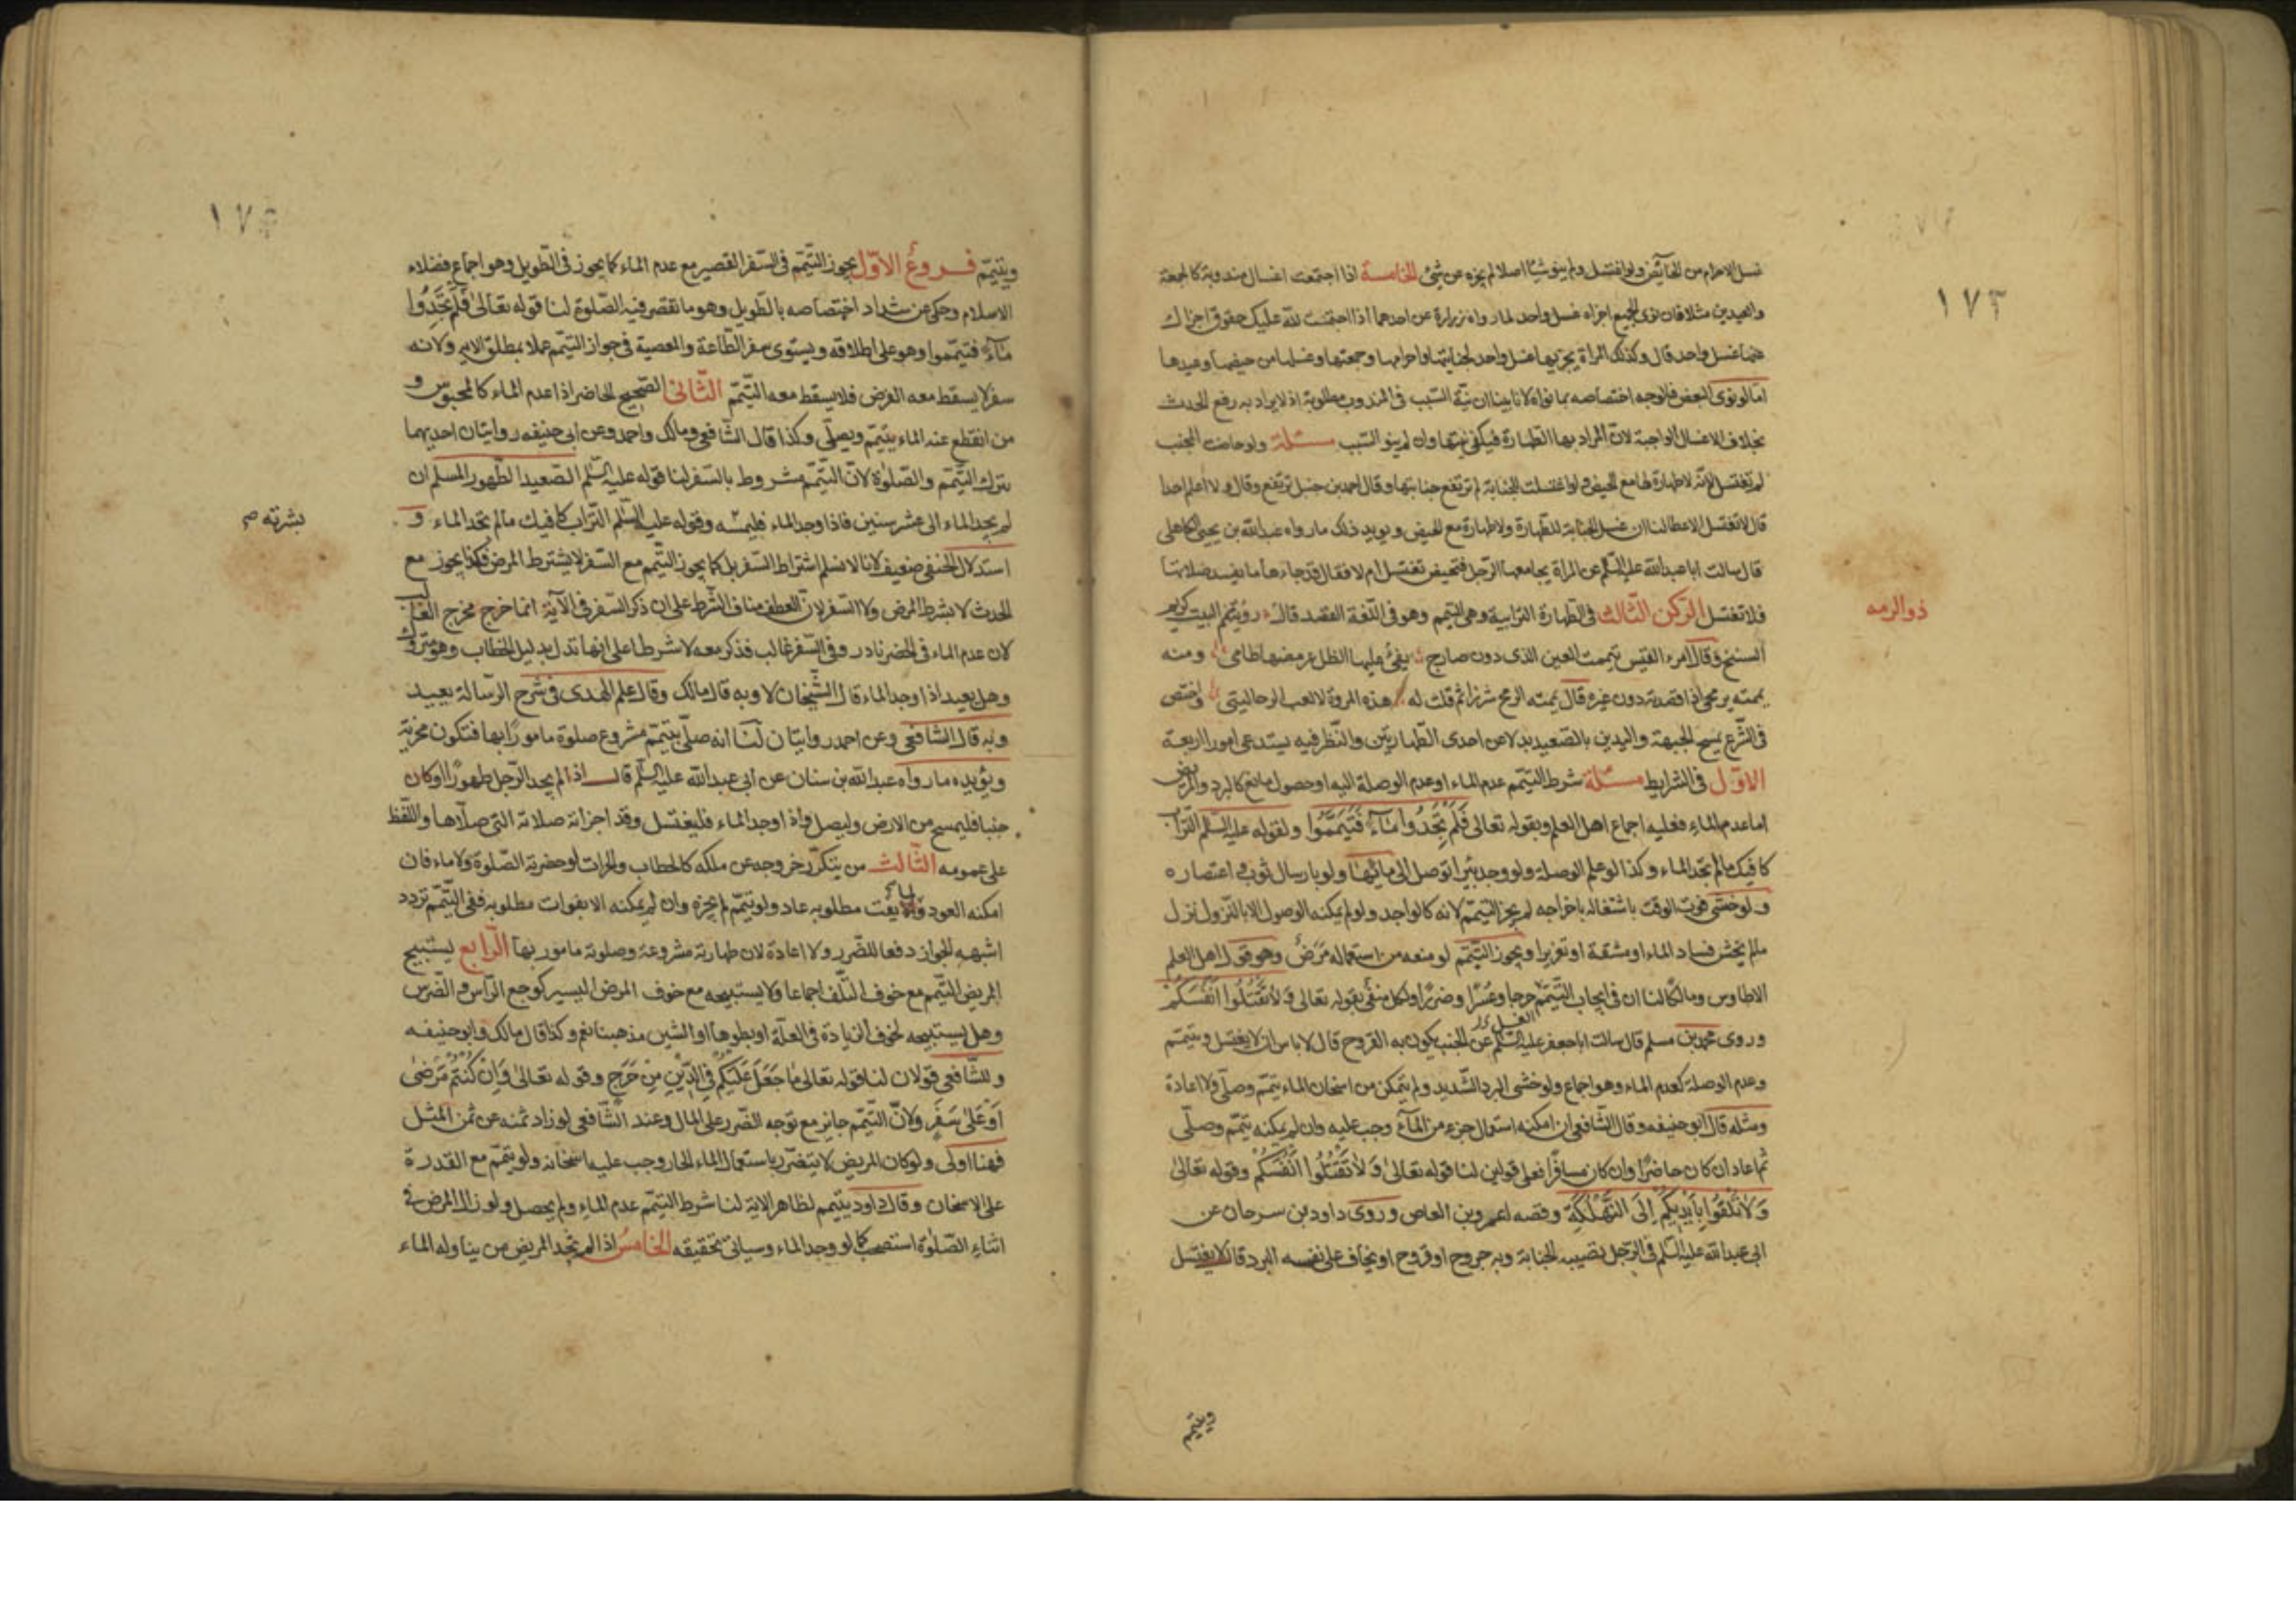 ١٧٣
غسل الاحرام من الحائض ولو اغتسل ولم ينو شيئا اصلا لم يجزه عن شئ الخامسة اذا اجتمعت اغسال مندوبة كالجمعة
والعيدين مثلا فان نوى الجميع اجزاه غسل واحد لما رواه زرارة عن احدهما اذا اجتمعت لله عليك حقوق اجزاك
عنها غسل واحد قال وكذلك المراة يجزيها غسل واحد لجنابتها واحرامها وجمعتها وغسلها من حيضها وعيدها
اما لو نوى البعض فالوجه اختصاصه بما نواه لانا بينا ان نية السبب في المندوب مطلوبة اذ لا يراد به رفع الحدث
بخلاف الاغسال الواجبة لان المراد بها الطهارة فيكفي نيتها وان لم ينو السبب مسئلة ولو حاضت الجنب
لم تغتسل لانه لا طهارة لها مع الحيض ولو اغتسلت للجنابة لم ترتفع جنابتها وقال احمد بن حنبل ترتفع وقال ولا اعلم احدا
قال لا تغتسل الا عطا لنا ان غسل الجنابة للطهارة ولا طهارة مع الحيض ويويد ذلك ما رواه عبد الله بن يحيى الكاهلي
قال سالت ابا عبد الله عليه السلم عن المراة يجامعها الرجل فتحيض تغتسل ام لا فقال قد جاءها ما يفسد صلاتها
ذو الرمه
فلا تغتسل الركن الثالث في الطهارة الترابية وهي التيمم وهو في اللغة القصد قال
السنخ وقال امرء القيس تيممت العين الذى دون ضارج يفئ عليها الظل عرمضها طامى ومنه
يممته برمحى اذا قصدته دون غيره قال يممته الرمح شزرا ثم قلت له هذه المروة لا لعب الزحاليق واختص
في الشرع بمسح الجبهة واليدين بالصعيد بدلا عن احدى الطهارتين والنظر فيه يستدعى امورا اربعة
الاوّل في الشرايط مسئلة شرط التيمم عدم الماء او عدم الوصلة اليه او حصول مانع كالبرد والمرض
اما عدم الماء فعليه اجماع اهل العلم وبقوله تعالى فَلَمْ تَجِدُوا مَآءً فَتَيَمَّمُوا ولقوله عليه السلم التراب
كافيك ما لم تجد الماء وكذا لو عدم الوصلة ولو وجد بئرا توصل الى مائها ولو بارسال ثوب واعتصاره
ولو خشى فوت الوقت باشتغاله باخراجه لم يجز التيمم لانه كالواجد ولو لم يمكنه الوصول الا بالنزول نزل
ما لم يخش فساد الماء او مشقة او تغريرا ويجوز التيمم لو منعه من استعماله مرض وهو قول اهل العلم
الا طاوس ومالكا لنا ان في ايجاب التيمم حرجا وعسرا وضررا والكل منفي بقوله تعالى وَلَا تَقْتُلُوا اَنْفُسَكُمْ
الغسل
وروى محمد بن مسلم قال سالت ابا جعفر عليه السلم عن الجنب يكون به القروح قال لا باس ان لا يغتسل ويتيمم
وعدم الوصلة كعدم الماء وهو اجماع ولو خشى البرد الشديد ولم يتمكن من اسخان الماء تيمم وصلى ولا اعادة
ومثله قال ابو حنيفه وقال الشافعي ان امكنه استعمال جزء من المآء وجب عليه وان لم يمكنه تيمم وصلى
ثم اعاد ان كان حاضرا وان كان مسافرا فعلى قولين لنا قوله تعالى وَلَا تَقْتُلُوا اَنْفُسَكُمْ وقوله تعالى
وَلَا تُلْقُوا بِاَيْدِيكُمْ اِلَى التَّهْلُكَةِ وقصه لعمرو بن العاص وروى داود بن سرحان عن
ابى عبد الله عليه السلم في الرجل تصيبه الجنابة وبه جروح او قروح او يخاف على نفسه البرد قال لا يغتسل
ويتيمم
ويتيمم فـروعُ الاوّل يجوز التيمم في السفر القصير مع عدم الماء كما يجوز في الطويل وهو اجماع فضلاء
الاسلام وحكى عن شداد اختصاصه بالطويل وهو ما تقصر فيه الصلوة لنا قوله تعالى فَلَمْ تَجِدُوا
مَآءً فتيمموا وهو على اطلاقه ويستوى سفر الطاعة والمعصية في جواز التيمم عملا بمطلق الامر ولانه
سفر لا يسقط معه الفرض فلا يسقط معه التيمم الثّانى الصحيح الحاضر اذا عدم الماء كالمحبوس و
من انقطع عنه الماء يتيمم ويصلى وكذا قال الشافعي ومالك واحمد وعن ابى حنيفه روايتان احديهما
يترك التيمم والصلوة لان التيمم مشروط بالسفر لنا قوله عليه السلم الصعيد الطهور المسلم ان
لم يجد الماء الى عشر سنين فاذا وجد الماء فليمسّه وقوله عليه السلم التراب كافيك ما لم تجد الماء و
بشرته صم
استدلال الحنفى ضعيف لانا لا نسلم اشتراط السفر بل كما يجوز التيمم مع السفر لا يشترط المرض فكذا يجوز مع
الحدث لا بشرط المرض ولا السفر لان العطف مناف الشرط على ان ذكر السفر في الآية انما خرج مخرج الغالب
لان عدم الماء في الحضر نادر وفي السفر غالب فذكر معه لا شرطا على انها تدل بدليل الخطاب وهو متروك
وهل يعيد اذا وجد الماء قال الشيخان لا وبه قال مالك وقال علم الهدى في شرح الرسالة يعيد
وبه قال الشافعي وعن احمد روايتان لنا انه صلى بتيمم مشروع صلوة مامورا بها فتكون مجزية
ويؤيده ما رواه عبد الله بن سنان عن ابى عبد الله عليه السلم قال اذا لم يجد الرجل طهورا او كان
جنبا فليمسح من الارض وليصل واذا وجد الماء فليغتسل وقد اجزاته صلاته التى صلاها واللفظ
على عمومه الثّالث من يتكرر خروجه عن ملكه كالحطاب والحراث لو حضرته الصلوة ولا ماء فان
امكنه العود ولا يفت مطلوبه عاد ولو تيمم لم يجزه وان لم يمكنه الا بفوات مطلوبه ففي التيمم تردد
اشبهه الجواز دفعا للضرر ولا اعادة لان طهارته مشروعة وصلوته مامور بها الرّابع يستبيح
المريض التيمم مع خوف التلف اجماعا ولا يستبيحه مع خوف المرض اليسير كوجع الراس والضرس
وهل يستبيحه لخوف الزيادة في العلة او بطوها او الشين مذهبنا نعم وكذا قال مالك وابو حنيفه
وللشافعي قولان لنا قوله تعالى مَا جَعَلَ عَلَيْكُمْ فِي الدِّيْنِ مِنْ حَرَجٍ وقوله تعالى وَاِنْ كُنْتُمْ مَرْضٰى
اَوْ عَلٰى سَفَرٍ ولان التيمم جايز مع توجه الضرر على المال وعند الشافعي لو زاد ثمنه عن ثمن المثل
فهنا اولى ولو كان المريض لا يتضرر باستعمال الماء الحار وجب عليه اسخانه ولو تيمم مع القدرة
على الاسخان وقال داود يتيمم لظاهر الاية لنا شرط التيمم عدم الماء ولم يحصل ولو زال المرض في
اثناء الصلوة استصحب كما لو وجد الماء وسياتى تحقيقه الخامسُ اذا لم يجد المريض من يناوله الماء